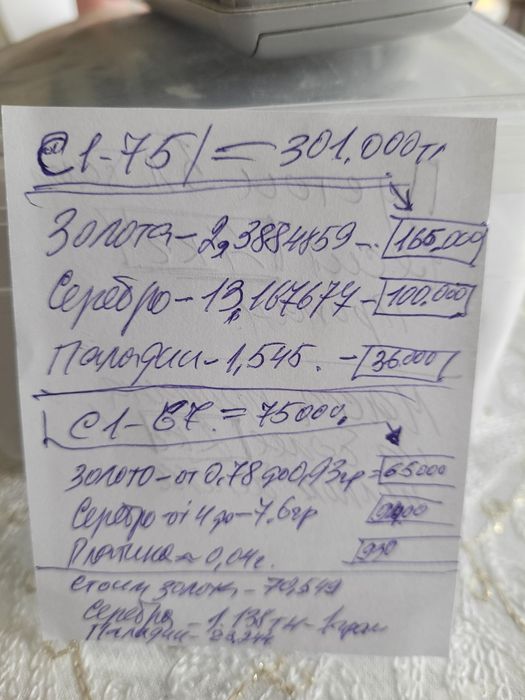 С1-75 = 301.000тг
Золота - 2,3884859 - 165,000
Серебро - 13,167677 - 100.000
Паладии - 1,545. - 36.000
С1-67. = 75000.
Золото - от 0,78 до 0,93гр = 65000
Серебро от 4 до - 7.6гр
Платина ≈ 0,04г.
Стоим золота - 70,549
Серебро - 1.138тг - 1грам
Паладии -